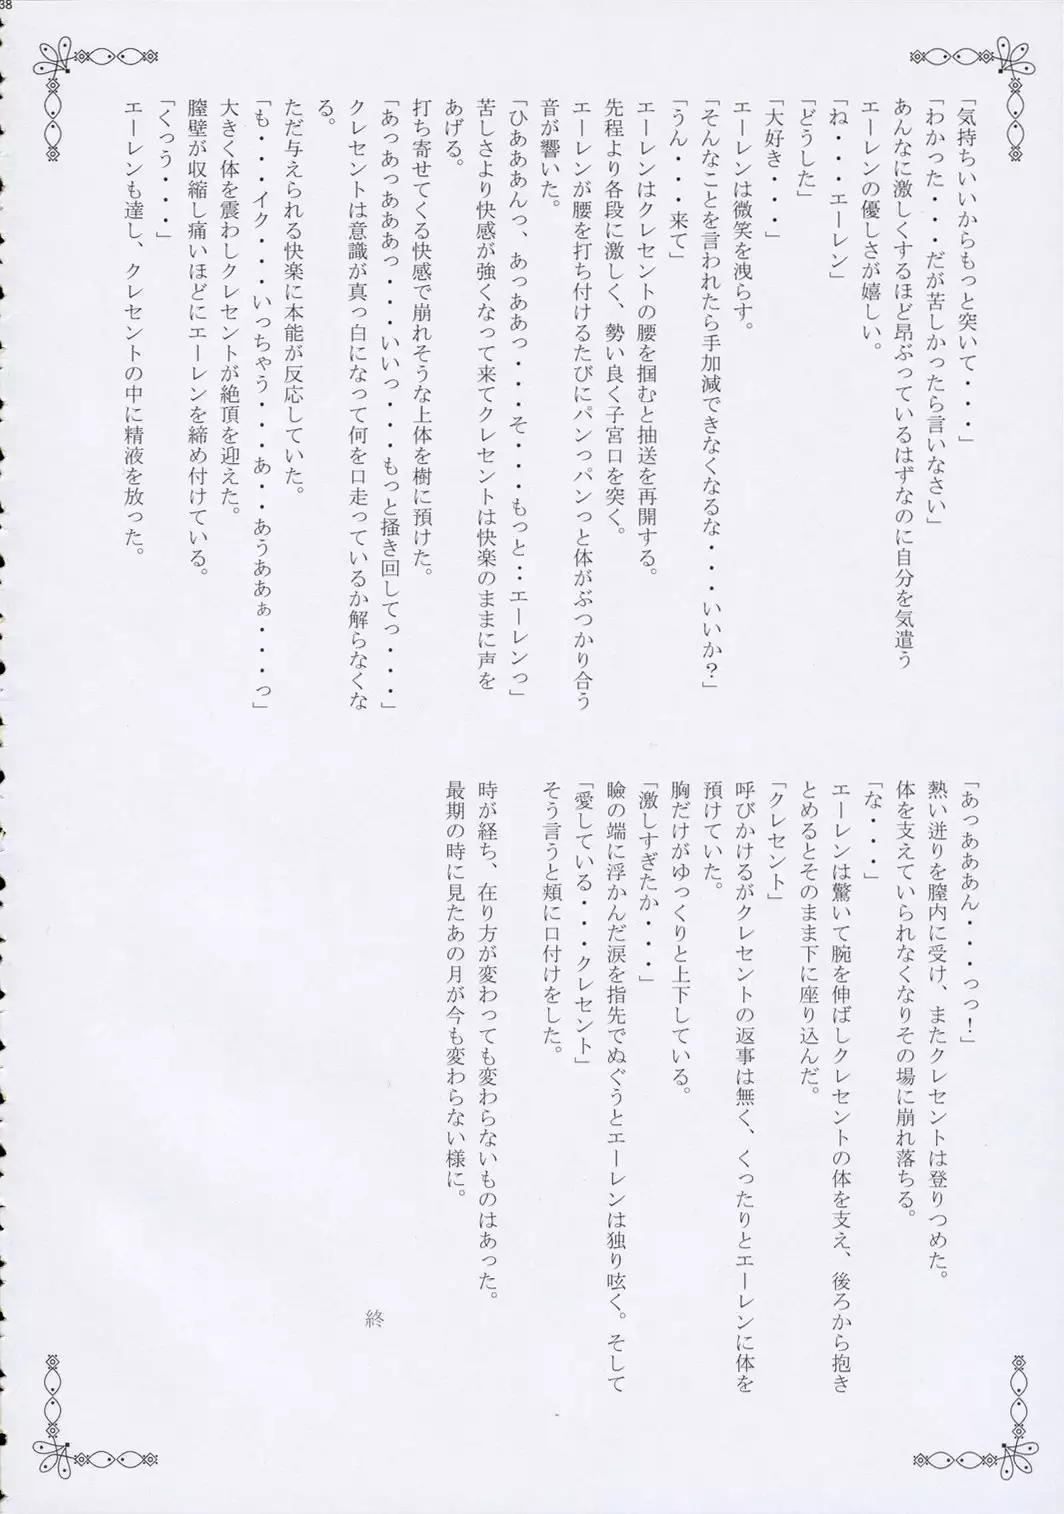 38
「気持ちいいからもっと突いて・・・」
「わかった・・・だが苦しかったら言いなさい」
あんなに激しくするほど昂ぶっているはずなのに自分を気遣う
エーレンの優しさが嬉しい。
「ね・・・エーレン」
「どうした」
「大好き・・・」
エーレンは微笑を洩らす。
「そんなことを言われたら手加減できなくなるな・・・いいか？」
「うん・・・来て」
エーレンはクレセントの腰を掴むと抽送を再開する。
先程より各段に激しく、勢い良く子宮口を突く。
エーレンが腰を打ち付けるたびにパンっパンっと体がぶつかり合う
音が響いた。
「ひあああんっ、あっああっ・・・そ・・・もっと‥エーレンっ」
苦しさより快感が強くなって来てクレセントは快楽のままに声を
あげる。
打ち寄せてくる快感で崩れそうな上体を樹に預けた。
「あっあっあああっ・・・いいっ・・・もっと掻き回してっ・・・」
クレセントは意識が真っ白になって何を口走っているか解らなくな
る。
ただ与えられる快楽に本能が反応していた。
「も・・・イク・・・いっちゃう・・・あ・・あうああぁ・・・っ」
大きく体を震わしクレセントが絶頂を迎えた。
膣壁が収縮し痛いほどにエーレンを締め付けている。
「くっう・・・」
エーレンも達し、クレセントの中に精液を放った。
「あっあああん・・・っっ！」
熱い迸りを膣内に受け、またクレセントは登りつめた。
体を支えていられなくなりその場に崩れ落ちる。
「な・・・」
エーレンは驚いて腕を伸ばしクレセントの体を支え、後ろから抱き
とめるとそのまま下に座り込んだ。
「クレセント」
呼びかけるがクレセントの返事は無く、くったりとエーレンに体を
預けていた。
胸だけがゆっくりと上下している。
「激しすぎたか・・・」
瞼の端に浮かんだ涙を指先でぬぐうとエーレンは独り呟く。そして
「愛している・・・クレセント」
そう言うと頬に口付けをした。
時が経ち、在り方が変わっても変わらないものはあった。
最期の時に見たあの月が今も変わらない様に。
終